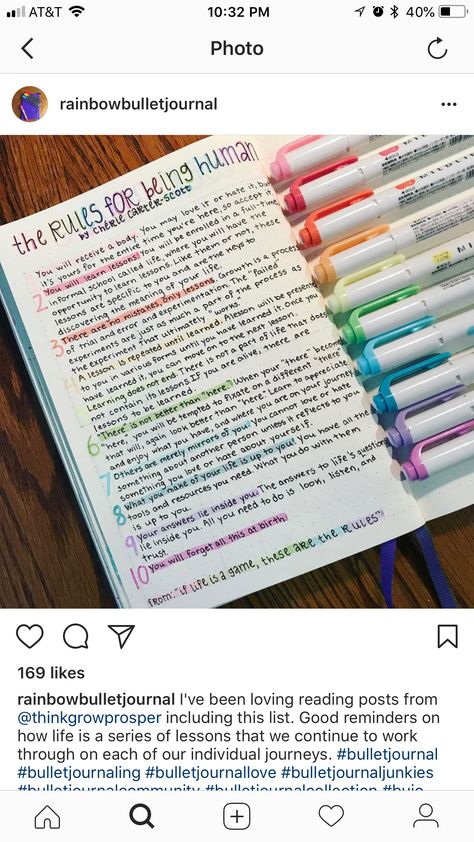 AT&T
10:32 PM
40%
Photo
rainbowbulletjournal
the RULES FOR being human
by CHERIE CARTER-SCOTT
1 You will receive a body. You may love it or hate it, but
it's yours for the entire time you're here, so accept it.
2 You will learn lessons. You will be enrolled in a full-time,
informal school called life, where you will have the
opportunity to learn lessons. Like them or not, these
lessons are specific to you and are the keys to
discovering the meaning of your life.
3 There are no mistakes, only lessons. Growth is a process
of trial and error and experimentation. The "failed"
experiments are just as much a part of the process as
the experiment than ultimately "works."
4 A lesson is repeated until learned. A lesson will be presented
to you in various forms until you have learned it. Once you
have learned it, you can move on to the next lesson.
Learning does not end. There is not a part of life that does
not contain its lessons. If you are alive, there are
lessons to be learned.
6 "There" is no better than "here." When your "there" becomes
"here," you will be tempted to fixate on a different "there"
that will, again look better than "here." Learn to appreciate
and enjoy what you have, and where you are on your journey.
7 Others are merely mirrors of you. You cannot love or hate
something about another person unless it reflects to you
something you love or hate about yourself.
8 What you make of your life is up to you! You have all the
tools and resources you need. What you do with them
is up to you.
9 Your answers lie inside you. The answers to life's questions
lie inside you. All you need to do is look, listen, and
trust.
10 You will forget all this at birth.
from: "if life is a game, these are the RULES"
169 likes
rainbowbulletjournal I've been loving reading posts from
@thinkgrowprosper including this list. Good reminders on
how life is a series of lessons that we continue to work
through on each of our individual journeys. #bulletjournal
#bulletjournaling #bulletjournallove #bulletjournaljunkies
#bulletjournalcommunity #bulletjournalcollection #bujo